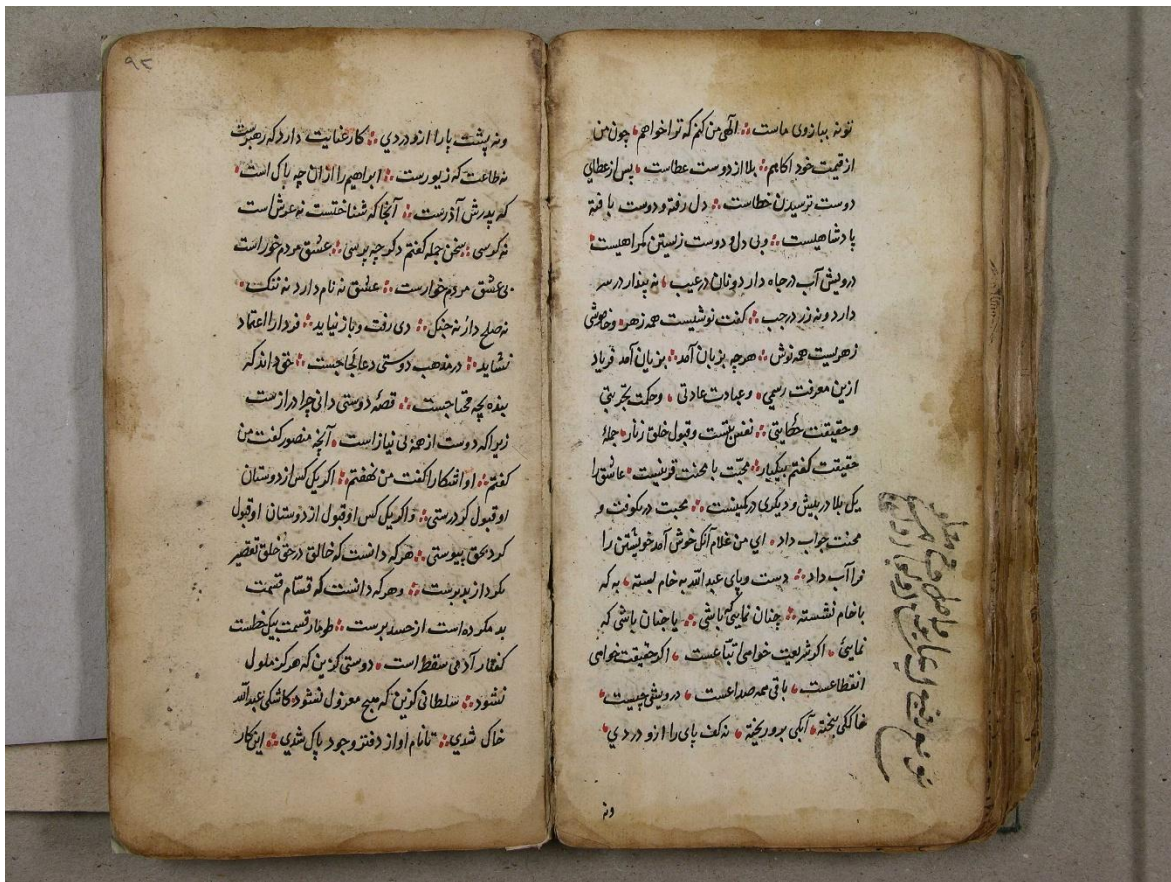 تونه ببازوی ماست الهی من کیم که ترا خواهم چون من
از قیمت خود اکاهم بلا از دوست عطاست پس از عطای
دوست ترسیدن خطاست دل رفته و دوست یافته
پادشاهیست و بی دل و دوست زیستن کمراهیست
درویش آب در چاه دارد و نان در غیب نه پندار در سر
دارد و نه زر در جیب کفت نوشیست همه زهر و خاموشی
زهریست همه نوش هرچه بزبان آمد بزیان آمد فریاد
ازین معرفت رسمی و عبادت عادتی و حکمت تجربتی
و حقیقت حکایتی نفس بتست و قبول خلق زنار جملهٔ
حقیقت کفتم بیکبار محبت با محنت قرینست عاشق را
یک بلا در پیش و دیکری در کمینست محبت در بکوفت و
محنت جواب داد ای من غلام آنک خوش آمد خویشتن را
فرا آب داد دست و پای عبد الله به خام بسته به که
با خام نشسته چنان نمایی که باشی یا چنان باشی که
نمایی اکر شریعت خواهی اتباعست اکر حقیقت خواهی
انقطاعست باقی همه صداعست درویشی چیست
خاککی بیخته آبکی برو ریخته نه کف پای را ازو دردی
ونه
۹۲
ونه پشت پا را ازو دردی کار عنایت دارد که رهبرست
نه طاعت که زیورست ابراهیم را ازان چه باک است
که پدرش آذرست آنجا که شناختست نه عرش است
نه کرسی سخن جمله کفتم دکر چه پرسی عشق مردم خوراست
بی عشق مردم خوارست عشق نه نام دارد نه ننک
نه صلح دارد نه جنک دی رفت و باز نیاید فردا را اعتماد
نشاید در مذهب دوستی دعا لجاجست حق داند که
بنده بچه محتاجست قصهٔ دوستی دانی چرا درازست
زیرا که دوست از همه بی نیازاست آنچه منصور کفت من
کفتم او اشکارا کفت من نهفتم اکر یکی کس از دوستان
او قبول کردرستی و اکر یکی کس او قبول از دوستان او قبول
کرد بحق پیوستی هرکه دانست که خالق در حق خلق تقصیر
نکرد از بد برست و هرکه دانست که قسام قسمت
بد نکرده است از حسد برست طومار قسمت بیک خطست
کفتار آدمی سقط است دوستی کزین که هرکز ملول
نشود سلطانی کزین که هیچ معزول نشود کاشکی عبدالله
خاک شدی تا نام او از دفتر وجود پاک شدی این کار